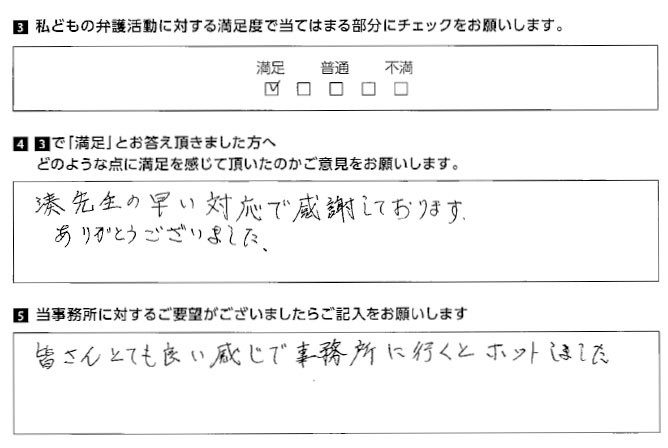 3 私どもの弁護活動に対する満足度で当てはまる部分にチェックをお願いします。
満足 普通 不満
4 3で「満足」とお答え頂きました方へ
どのような点に満足を感じて頂いたのかご意見をお願いします。
湊先生の早い対応で感謝しております.
ありがとうございました、
5 当事務所に対するご要望がございましたらご記入をお願いします
皆さんとても良い感じで事務所に行くとホットしました